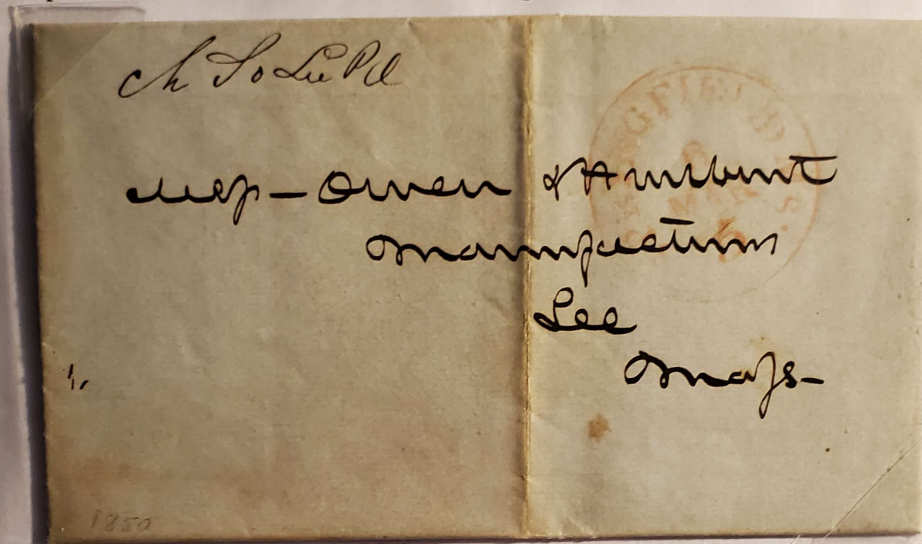 Ch So Lee Pd
Mess– Owen & Hurlbut
Manufacturers
Lee
Mass–
1850